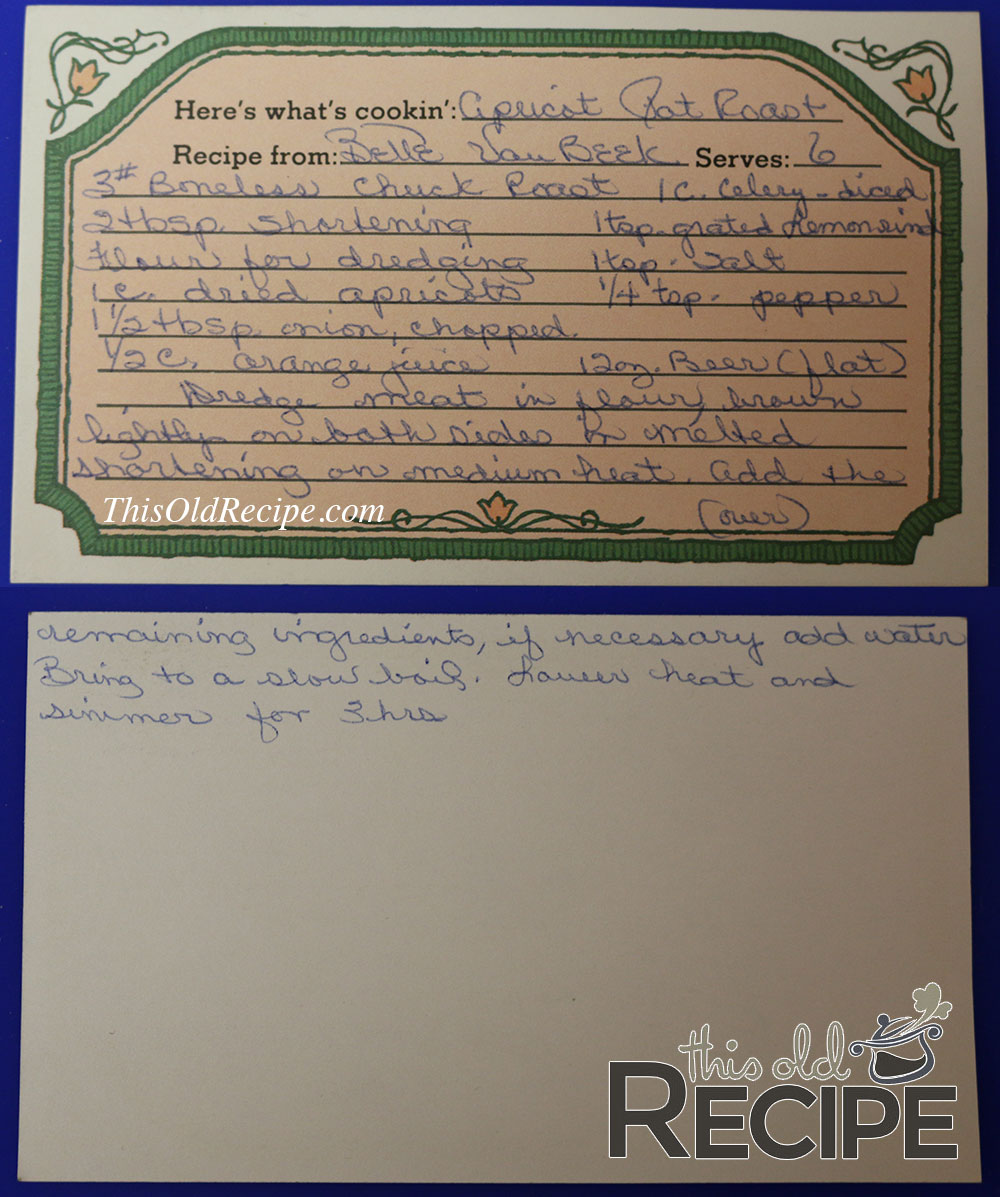 Here's what's cookin': Apricot Pot Roast
Recipe from: Belle Van Beek Serves: 6
3# Boneless Chuck Roast 1 c. celery - diced
2 tbsp. shortening 1 tsp. grated lemon rind
Flour for dredging 1 tsp. Salt
1 c. dried apricots 1/4 tsp. pepper
1 1/2 tbsp. onion, chopped
1/2 c. orange juice 12 oz. Beer (flat)
Dredge meat in flour, brown
lightly on both sides in melted
shortening on medium heat. Add the
ThisOldRecipe.com
(over)
remaining ingredients, if necessary add water
Bring to a slow boil. Lower heat and
simmer for 3 hrs
this old
RECIPE